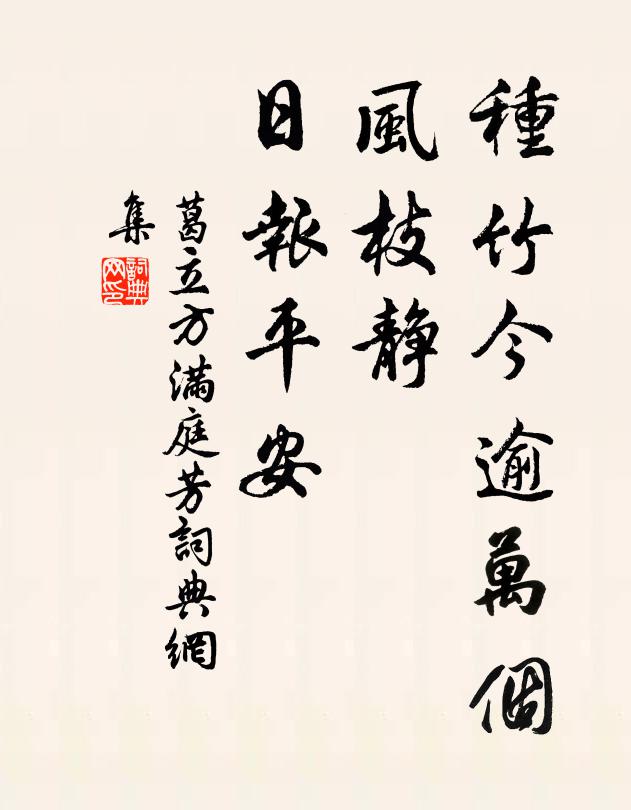 種竹今逾萬個
風枝靜
日報平安
葛立方滿庭芳詞典網
集
詞典網印